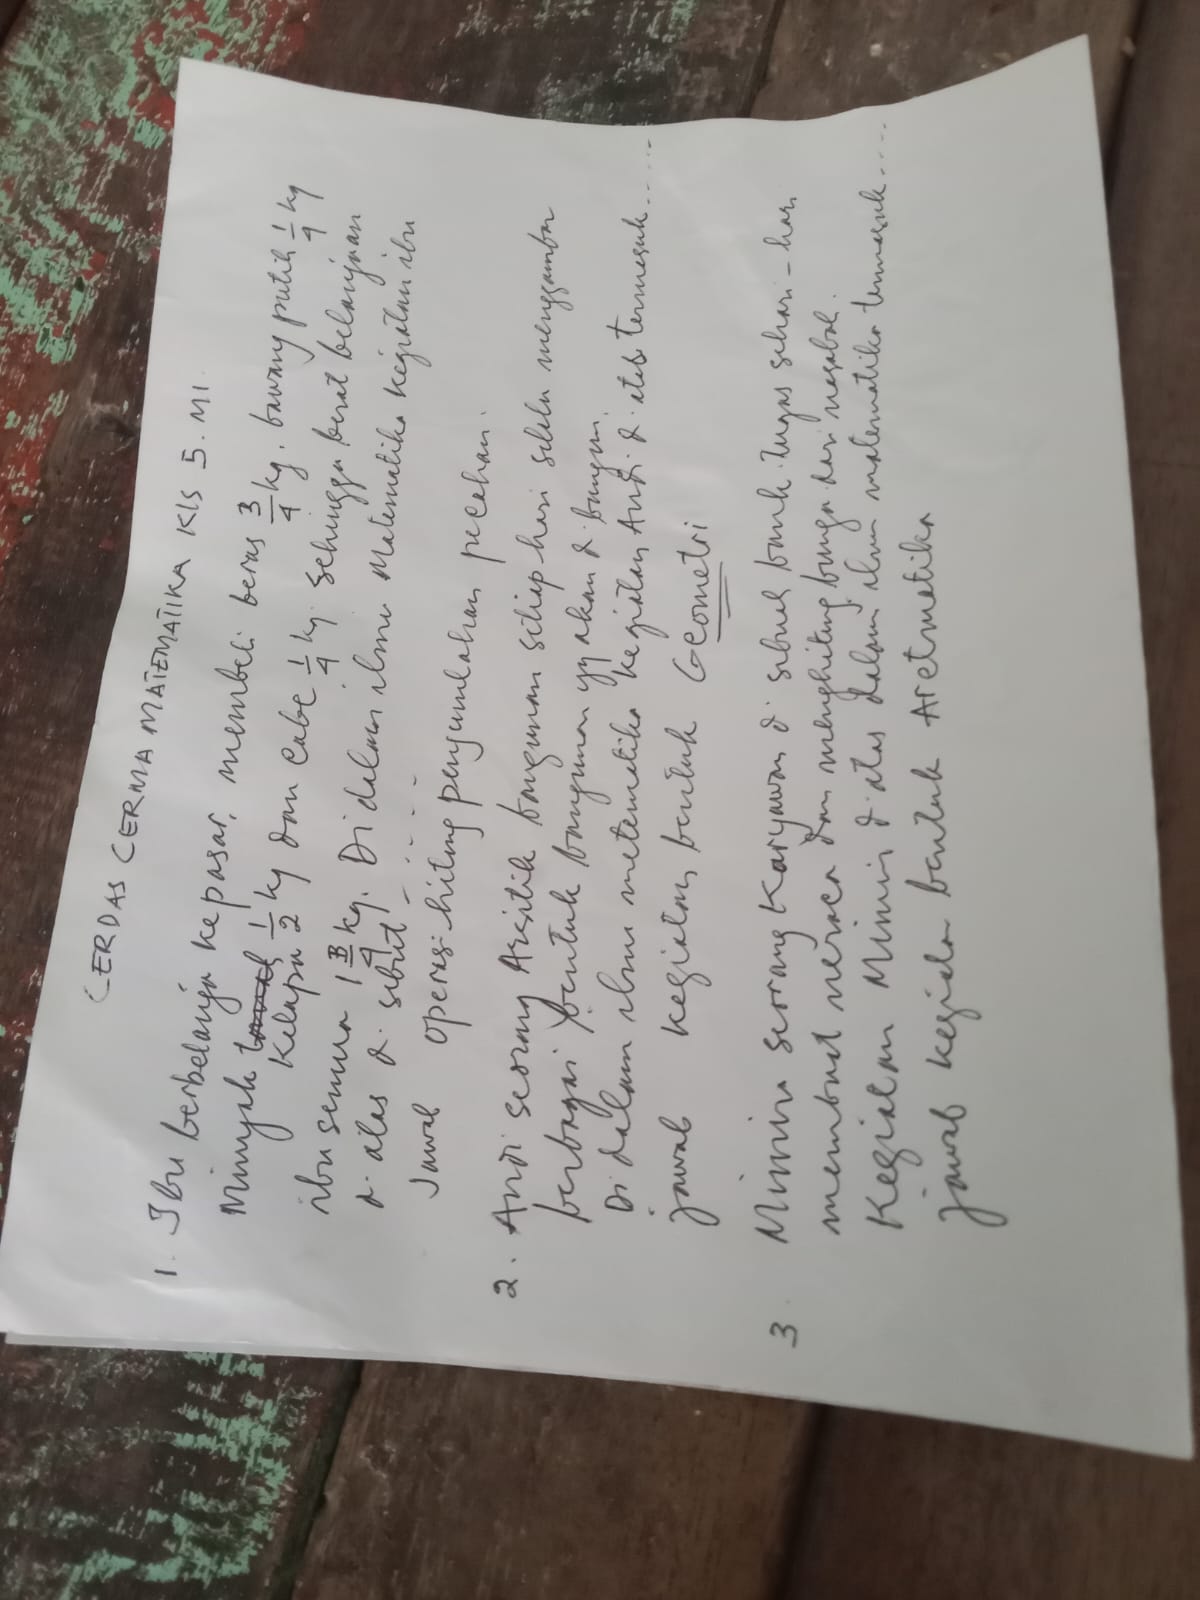 CERDAS CERMA MATEMATIKA KLS 5. MI.
1. Ibu berbelanja kepasar, membeli beras 3/4 kg, bawang putih 1/4 kg
Minyak Kelapa 1/2 kg dan cabe 1/4 kg sehingga berat belanjaan
ibu semua 1 3/4 kg. Di dalam ilmu matematika kegiatan ibu
di atas di sebut - . . . .
Jawab operasi hitung penjumlahan pecahan.
2. Andi seorang Arsitik bangunan setiap hari selalu menggambar
berbagai bentuk bangunan yg akan di bangun
Di dalam ilmu matematika kegiatan Andi di atas termasuk.....
Jawab kegiatan bentuk Geometri
3 Mimin seorang Karyawan di sebuah bank. tugas sehari-hari
membuat neraca dan menghitung bunga dari nasabah.
Kegiatan Mimin di atas dalam ilmu matematika termasuk.....
jawab kegiatan bentuk Aretmatika